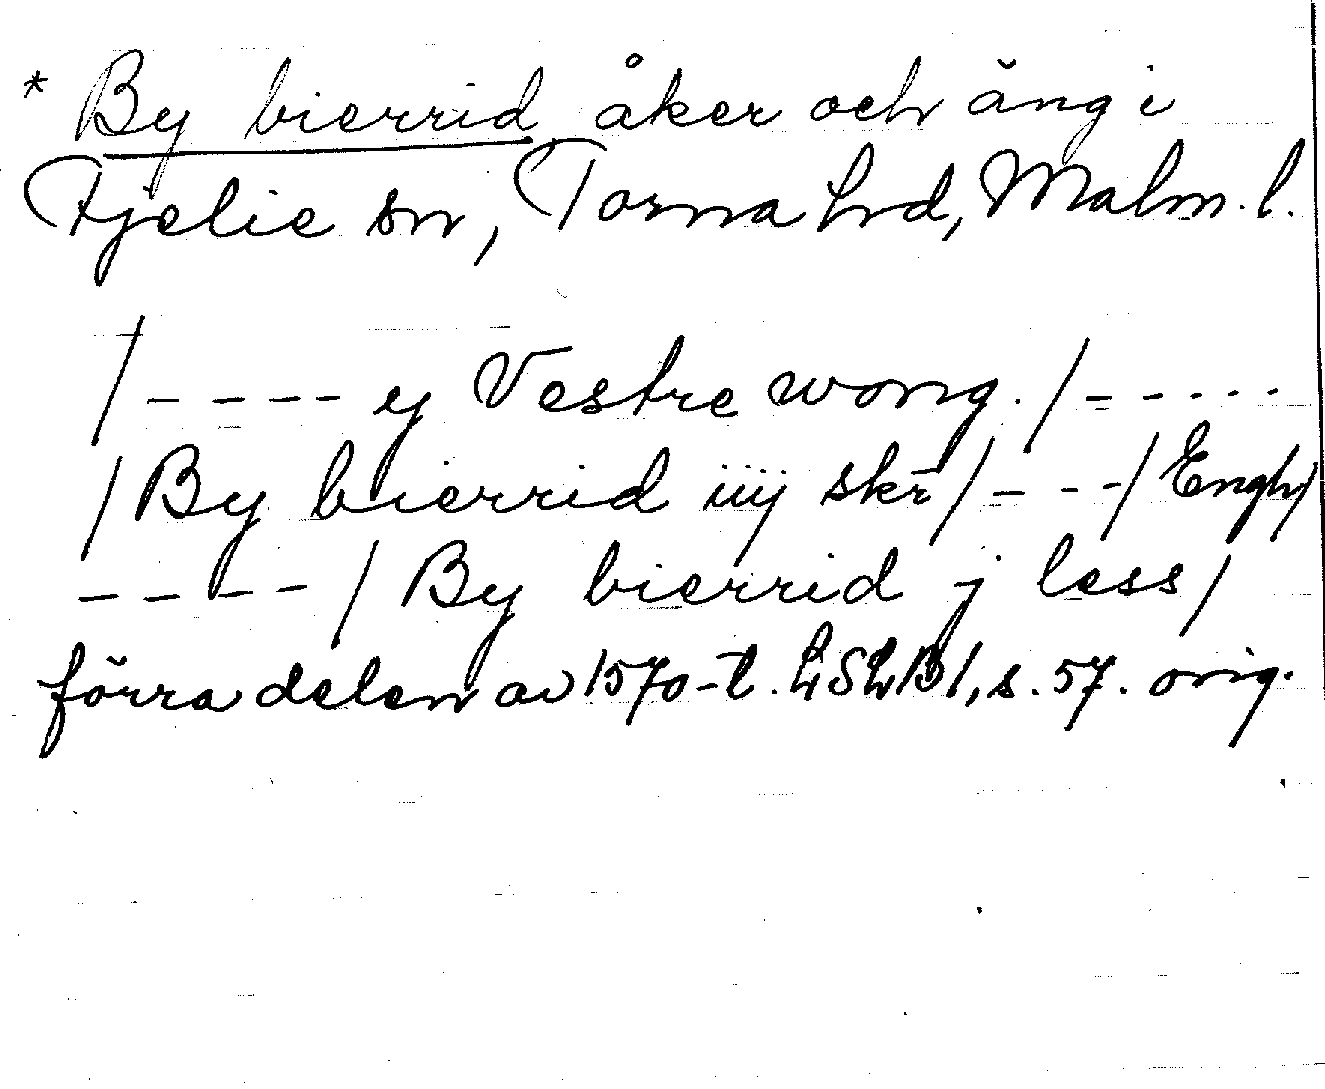 * By bierrid åker och äng i
Fjelie sn, Torna hrd, Malm. l.
/---- ej Vestre wong. /-----
/By bierrid iiij skr̄/---/Engh/
----/ By bierrid j less/
förra delen av 1570-t. LSLB1, s. 57. orig.